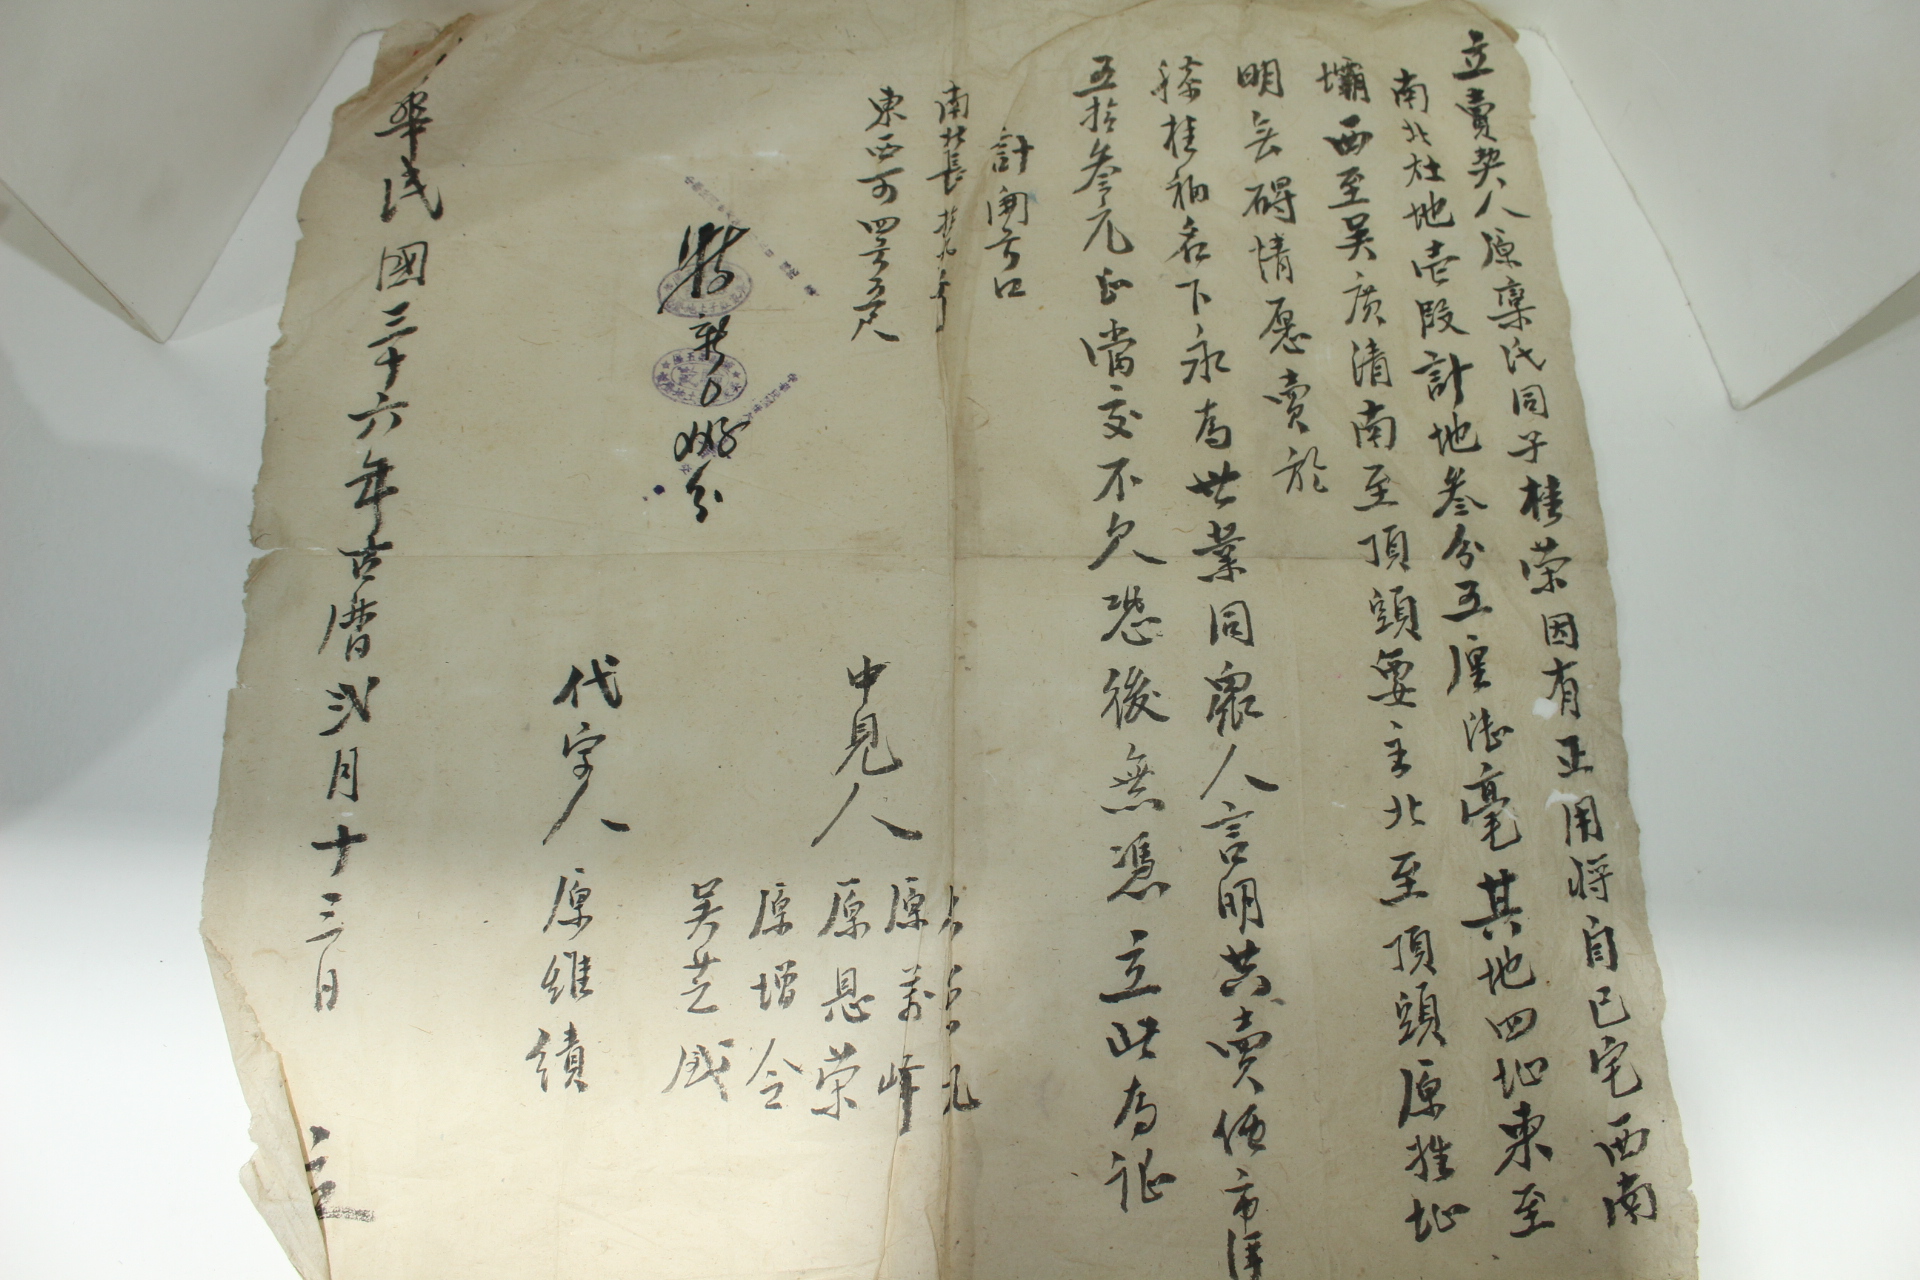 立賣契人原棄氏同子桂荣因有正用將自己宅西南
南北社地壱段計地叁分五厘陆毫其地四址東至
壩西至吴廣清南至頂頭要主北至頂頭原推址
明无碍情愿賣於
桂袖名下永為世業同眾人言明共賣価市洋
五拾叁元正當交不欠恐後無憑立此為证
計開弓口
南北長
東西可四弓五尺
中見人
原萬峰
原恩荣
原增令
吴芝成
代字人 原維績
華民國三十六年古曆弍月十三日 立